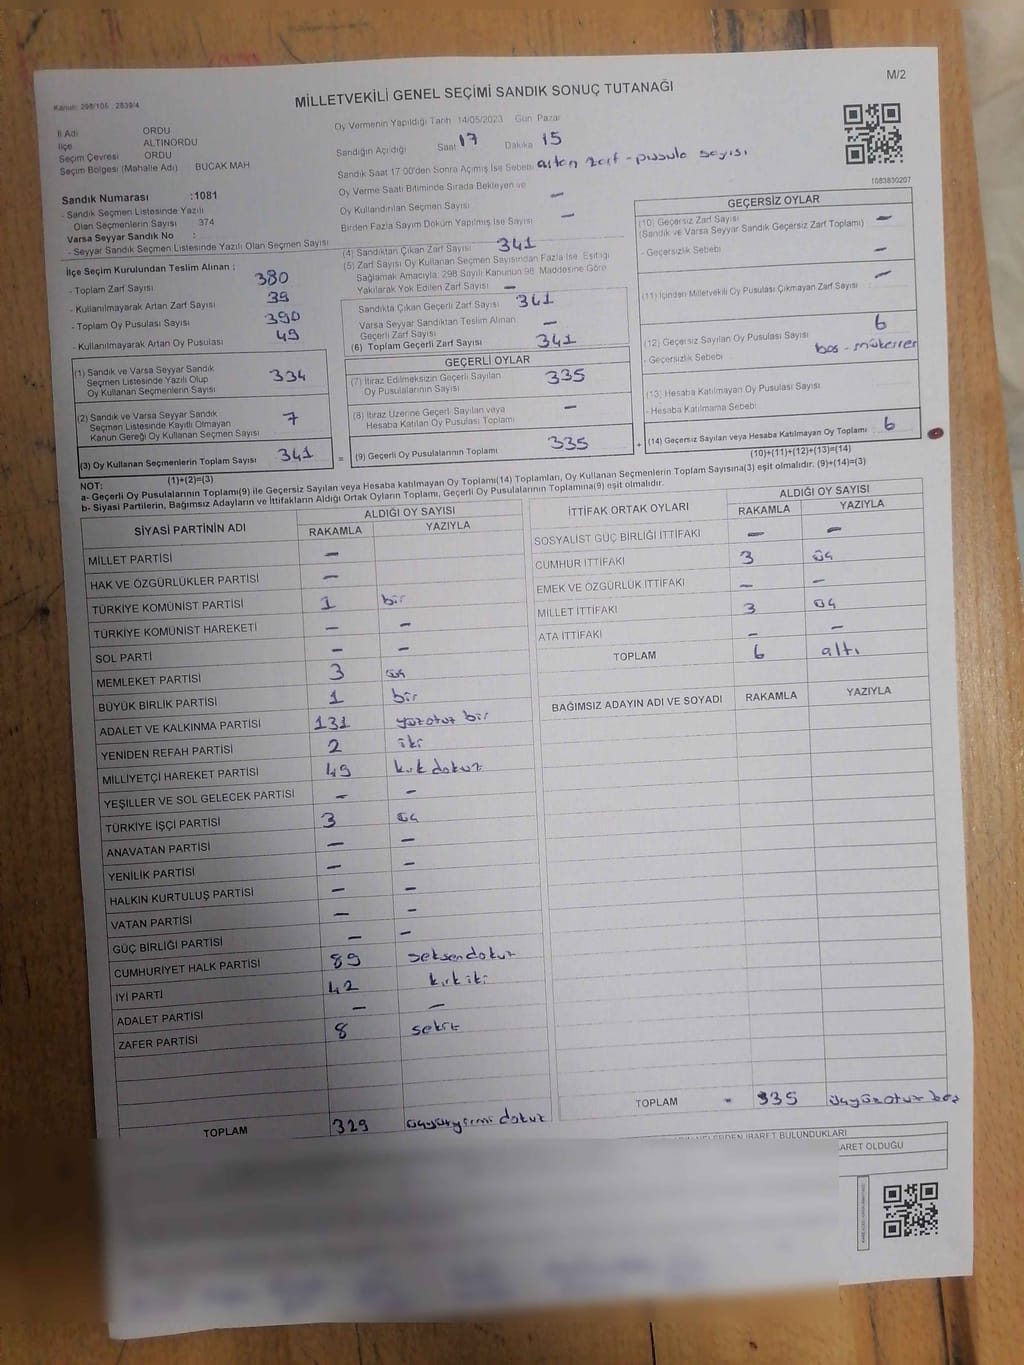 M/2
Kanun: 298/105 , 2839/4
MİLLETVEKİLİ GENEL SEÇİMİ SANDIK SONUÇ TUTANAĞI
İl Adı ORDU
İlçe ALTINORDU
Seçim Çevresi ORDU
Seçim Bölgesi (Mahalle Adı) BUCAK MAH.
Sandık Numarası :1081
- Sandık Seçmen Listesinde Yazılı
Olan Seçmenlerin Sayısı 374
Varsa Seyyar Sandık No :
- Seyyar Sandık Seçmen Listesinde Yazılı Olan Seçmen Sayısı
Oy Vermenin Yapıldığı Tarih 14/05/2023 Gün Pazar
Sandığın Açıldığı Saat 17 Dakika 15
Sandık Saat 17 00'den Sonra Açımış İse Sebebi artan zarf - pusula sayısı
Oy Verme Saati Bitiminde Sırada Bekleyen ve
Oy Kullandırılan Seçmen Sayısı —
Birden Fazla Sayım Döküm Yapılmış İse Sayısı —
1083830207
İlçe Seçim Kurulundan Teslim Alınan :
- Toplam Zarf Sayısı 380
- Kullanılmayarak Artan Zarf Sayısı 39
- Toplam Oy Pusulası Sayısı 390
- Kullanılmayarak Artan Oy Pusulası 49
(1) Sandık ve Varsa Seyyar Sandık
Seçmen Listesinde Yazılı Olup
Oy Kullanan Seçmenlerin Sayısı 334
(2) Sandık ve Varsa Seyyar Sandık
Seçmen Listesinde Kayıtlı Olmayan
Kanun Gereği Oy Kullanan Seçmen Sayısı 7
(3) Oy Kullanan Seçmenlerin Toplam Sayısı 341
(1)+(2)=(3)
(4) Sandıktan Çıkan Zarf Sayısı 341
(5) Zarf Sayısı Oy Kullanan Seçmen Sayısından Fazla İse, Eşitliği
Sağlamak Amacıyla, 298 Sayılı Kanunun 98. Maddesine Göre
Yakılarak Yok Edilen Zarf Sayısı —
Sandıkta Çıkan Geçerli Zarf Sayısı 341
Varsa Seyyar Sandıktan Teslim Alınan
Geçerli Zarf Sayısı —
(6) Toplam Geçerli Zarf Sayısı 341
GEÇERLİ OYLAR
(7) İtiraz Edilmeksizin Geçerli Sayılan
Oy Pusulalarının Sayısı 335
(8) İtiraz Üzerine Geçerli Sayılan veya
Hesaba Katılan Oy Pusulası Toplamı —
= (9) Geçerli Oy Pusulalarının Toplamı 335 +
GEÇERSİZ OYLAR
(10) Geçersiz Zarf Sayısı —
(Sandık ve Varsa Seyyar Sandık Geçersiz Zarf Toplamı)
- Geçersizlik Sebebi —
(11) İçinden Milletvekili Oy Pusulası Çıkmayan Zarf Sayısı —
(12) Geçersiz Sayılan Oy Pusulası Sayısı 6
- Geçersizlik Sebebi boş - mükerrer
(13) Hesaba Katılmayan Oy Pusulası Sayısı
- Hesaba Katılmama Sebebi
(14) Geçersiz Sayılan veya Hesaba Katılmayan Oy Toplamı 6
(10)+(11)+(12)+(13)=(14)
NOT:
a- Geçerli Oy Pusulalarının Toplamı(9) ile Geçersiz Sayılan veya Hesaba katılmayan Oy Toplamı(14) Toplamları, Oy Kullanan Seçmenlerin Toplam Sayısına(3) eşit olmalıdır. (9)+(14)=(3)
b- Siyasi Partilerin, Bağımsız Adayların ve İttifakların Aldığı Ortak Oyların Toplamı, Geçerli Oy Pusulalarının Toplamına(9) eşit olmalıdır.
SİYASİ PARTİNİN ADI ALDIĞI OY SAYISI
RAKAMLA YAZIYLA
MİLLET PARTİSİ —
HAK VE ÖZGÜRLÜKLER PARTİSİ —
TÜRKİYE KOMÜNİST PARTİSİ 1 bir
TÜRKİYE KOMÜNİST HAREKETİ — —
SOL PARTİ — —
MEMLEKET PARTİSİ 3 üç
BÜYÜK BİRLİK PARTİSİ 1 bir
ADALET VE KALKINMA PARTİSİ 131 yüzotuz bir
YENİDEN REFAH PARTİSİ 2 iki
MİLLİYETÇİ HAREKET PARTİSİ 49 kırk dokuz
YEŞİLLER VE SOL GELECEK PARTİSİ — —
TÜRKİYE İŞÇİ PARTİSİ 3 üç
ANAVATAN PARTİSİ — —
YENİLİK PARTİSİ — —
HALKIN KURTULUŞ PARTİSİ — —
VATAN PARTİSİ — —
GÜÇ BİRLİĞİ PARTİSİ — —
CUMHURİYET HALK PARTİSİ 89 seksendokuz
İYİ PARTİ 42 kırk iki
ADALET PARTİSİ — —
ZAFER PARTİSİ 8 sekiz
TOPLAM 329 üçyüzyirmi dokuz
İTTİFAK ORTAK OYLARI ALDIĞI OY SAYISI
RAKAMLA YAZIYLA
SOSYALİST GÜÇ BİRLİĞİ İTTİFAKI — —
CUMHUR İTTİFAKI 3 üç
EMEK VE ÖZGÜRLÜK İTTİFAKI — —
MİLLET İTTİFAKI 3 üç
ATA İTTİFAKI — —
TOPLAM 6 altı
BAĞIMSIZ ADAYIN ADI VE SOYADI RAKAMLA YAZIYLA
TOPLAM = 335 üçyüzotuz beş
NELERDEN İBARET BULUNDUKLARI
ARET OLDUĞU